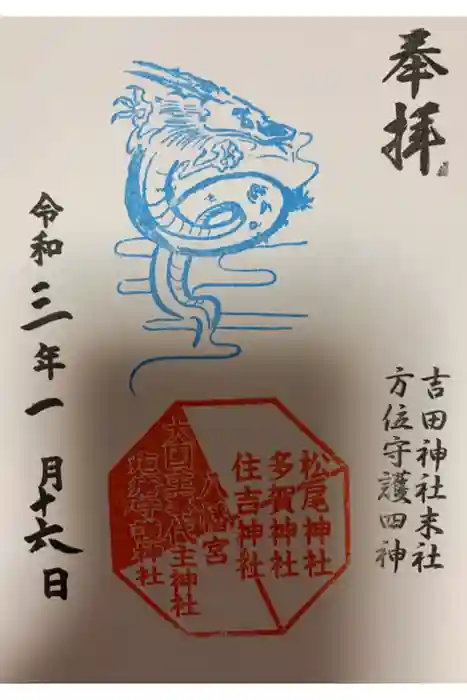 奉拝
吉田神社末社
方位守護四神
松尾神社
多賀神社
住吉神社
八幡宮
大国主事代主神社
守護神社
令和三年一月十六日